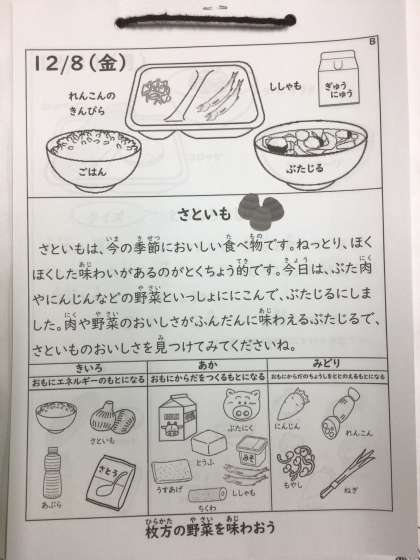 B
12/8(金)
れんこんの
きんぴら
ししゃも
ぎゅう
にゅう
ごはん
ぶたじる
さといも
さといもは、今の季節においしい食べ物です。ねっとり、ほく
ほくした味わいがあるのがとくちょう的です。今日は、ぶた肉
やにんじんなどの野菜といっしょににこんで、ぶたじるにしま
した。肉や野菜のおいしさがふんだんに味わえるぶたじるで、
さといものおいしさを見つけてみてくださいね。
きいろ
おもにエネルギーのもとになる
さといも
あぶら
さとう
あか
おもにからだをつくるもとになる
ぶたにく
とうふ
みそ
うすあげ
ししゃも
ちくわ
みどり
おもにからだのちょうしをととのえるもとになる
にんじん
れんこん
もやし
ねぎ
枚方の野菜を味わおう